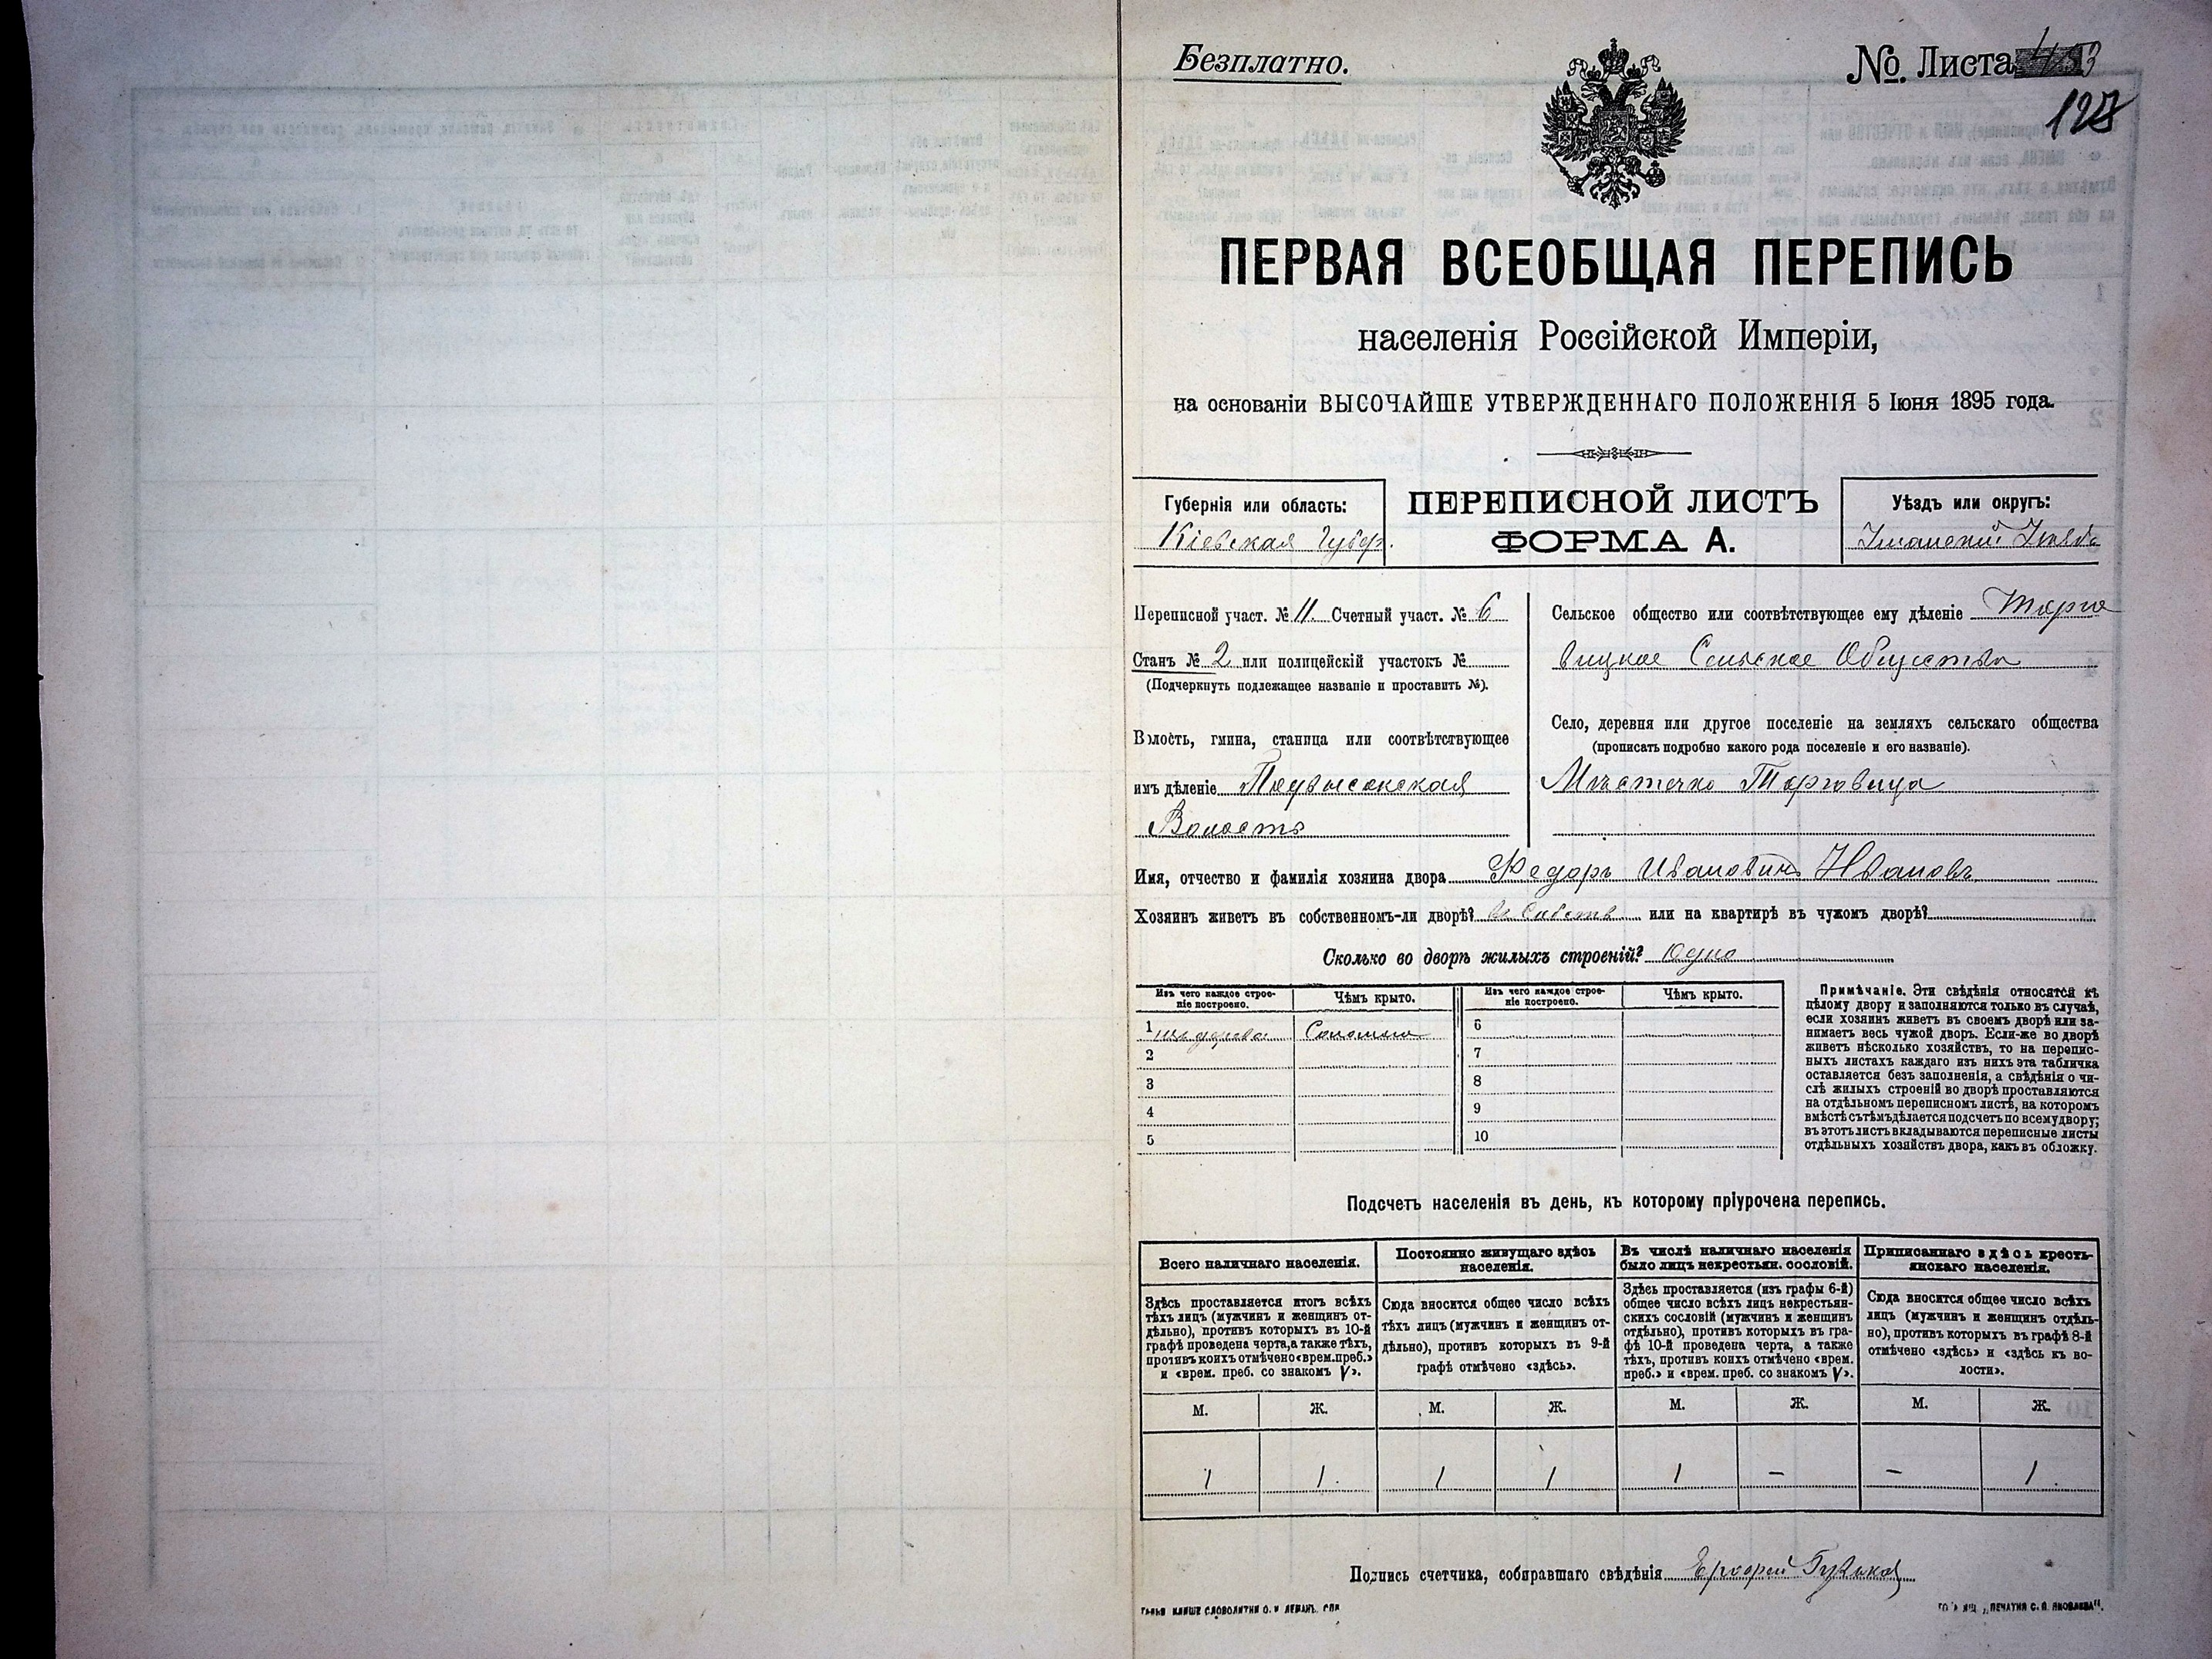 Безплатно.
№. Листа
128
ПЕРВАЯ ВСЕОБЩАЯ ПЕРЕПИСЬ
населенія Россійской Имперіи,
на основаніи ВЫСОЧАЙШЕ УТВЕРЖДЕННАГО ПОЛОЖЕНІЯ 5 Іюня 1895 года.
Губернія или область:
Кіевская Губер.
ПЕРЕПИСНОЙ ЛИСТЪ
ФОРМА А.
Уѣздъ или округъ:
Уманскій Уѣздъ
Переписной участ. № 11. Счетный участ. № 6
Станъ № 2 или полицейскій участокъ №
(Подчеркнуть подлежащее названіе и проставить №).
Волость, гмина, станица или соотвѣтствующее
имъ дѣленіе Подвысокская
Волость
Сельское общество или соотвѣтствующее ему дѣленіе Торго
вицкое Сельское Общество
Село, деревня или другое поселеніе на земляхъ сельскаго общества
(прописать подробно какого рода поселеніе и его названіе).
Мѣстечко Торговица
Имя, отчество и фамилія хозяина двора Федоръ Ивановичъ Ивановъ
Хозяинъ живетъ въ собственномъ-ли дворѣ? въ Собств или на квартирѣ въ чужомъ дворѣ?
Сколько во дворѣ жилыхъ строеній? Одно
Изъ чего каждое строе-
ніе построено.
Чѣмъ крыто.
Изъ чего каждое строе-
ніе построено.
Чѣмъ крыто.
1 изъ дерева Соломою
2
3
4
5
6
7
8
9
10
Примѣчаніе. Эти свѣдѣнія относятся къ
цѣлому двору и заполняются только въ случаѣ,
если хозяинъ живетъ въ своемъ дворѣ или за-
нимаетъ весь чужой дворъ. Если-же во дворѣ
живетъ нѣсколько хозяйствъ, то на перепис-
ныхъ листахъ каждаго изъ нихъ эта табличка
оставляется безъ заполненія, а свѣдѣнія о чи-
слѣ жилыхъ строеній во дворѣ проставляются
на отдѣльномъ переписномъ листѣ, на которомъ
вмѣстѣ съ тѣмъ дѣлается подсчетъ по всему двору;
въ этотъ листъ вкладываются переписные листы
отдѣльныхъ хозяйствъ двора, какъ въ обложку.
Подсчетъ населенія въ день, къ которому пріурочена перепись.
Всего наличнаго населенія.
Здѣсь проставляется итогъ всѣхъ
тѣхъ лицъ (мужчинъ и женщинъ от-
дѣльно), противъ которыхъ въ 10-й
графѣ проведена черта, а также тѣхъ,
противъ коихъ отмѣчено «врем. преб.»
и «врем. преб. со знакомъ V».
Постоянно живущаго здѣсь
населенія.
Сюда вносится общее число всѣхъ
тѣхъ лицъ (мужчинъ и женщинъ от-
дѣльно), противъ которыхъ въ 9-й
графѣ отмѣчено «здѣсь».
Въ числѣ наличнаго населенія
было лицъ некрестьян. сословій.
Здѣсь проставляется (изъ графы 6-й)
общее число всѣхъ лицъ некрестьян-
скихъ сословій (мужчинъ и женщинъ
отдѣльно), противъ которыхъ въ гра-
фѣ 10-й проведена черта, а также
тѣхъ, противъ коихъ отмѣчено «врем.
преб.» и «врем. преб. со знакомъ V».
Приписаннаго здѣсь кресть-
янскаго населенія.
Сюда вносится общее число всѣхъ
лицъ (мужчинъ и женщинъ отдѣль-
но), противъ которыхъ въ графѣ 8-й
отмѣчено «здѣсь» и «здѣсь къ во-
лости».
М. Ж. М. Ж. М. Ж. М. Ж.
1 1 1 1 1 – – 1
Подпись счетчика, собиравшаго свѣдѣнія